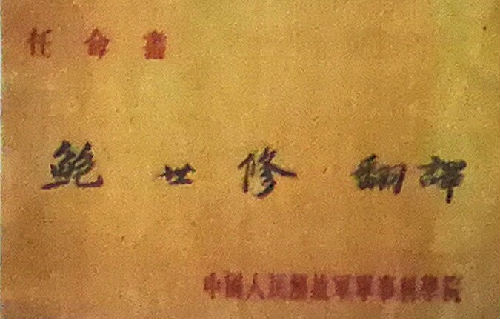 任命書
鲍世修 翻譯
中國人民解放軍軍事科學院